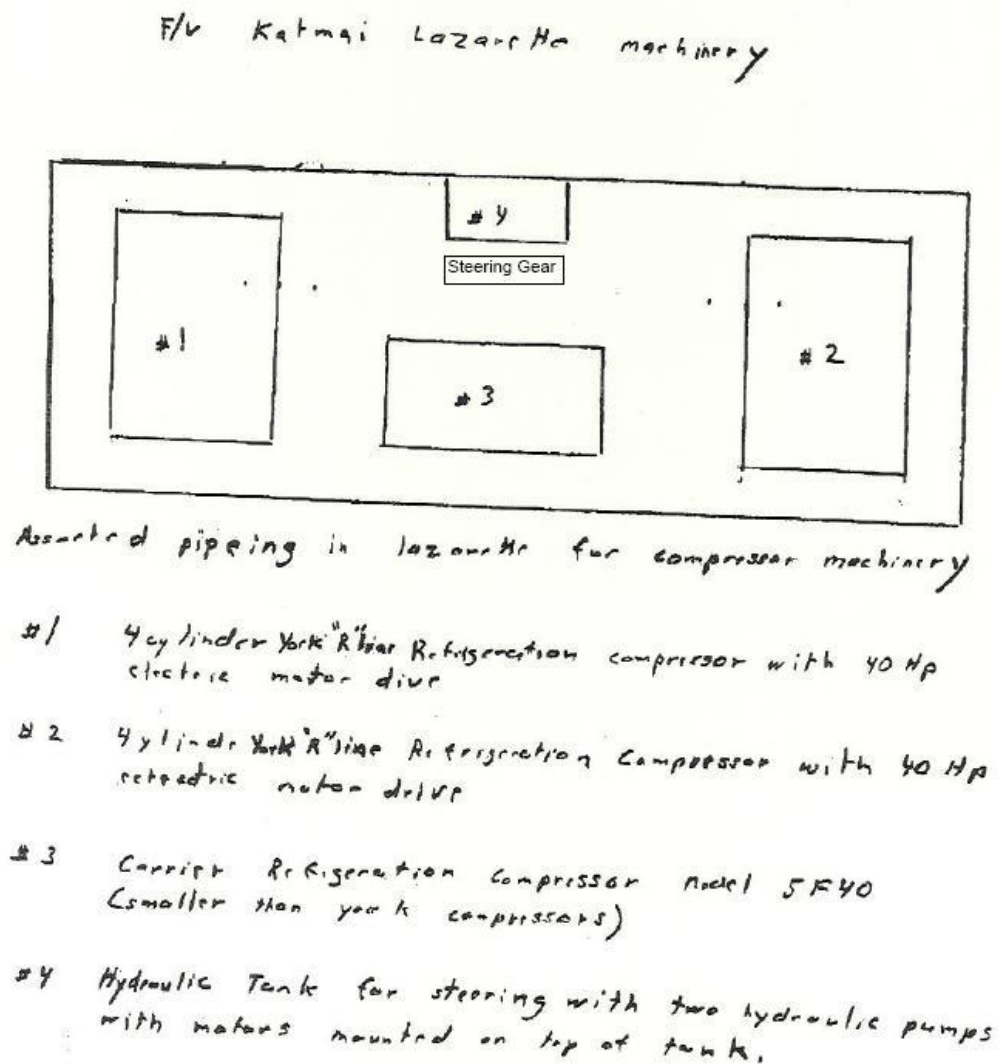 F/V Katmai Lazarette machinery
#4
Steering Gear
#1
#2
#3
Assorted pipeing in lazarette for compressor machinery
#1 4 cylinder York "R" line Refrigeration compressor with 40 Hp
electric motor dive
#2 4 ylinder York "R" line Refrigeration Compressor with 40 Hp
motor drive
#3 Carrier Refigeration compressor model 5F40
(smaller than york compressors)
#4 Hydraulic Tank for steering with two hydraulic pumps
with motors mounted on top of tank.